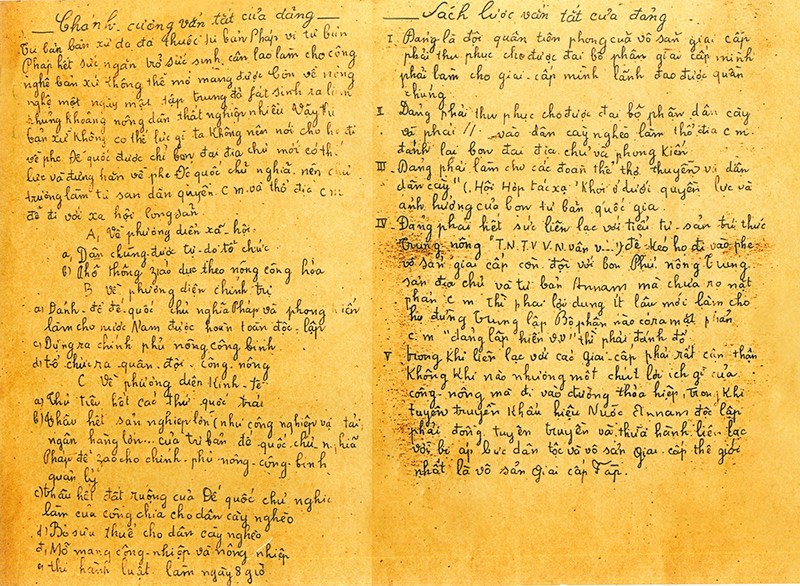 Chanh cương vắn tắt của đảng
Tư bản bản xứ đã thuộc tư bản Pháp vì tư bản
Pháp hết sức ngăn trở sức sinh sản làm cho công
nghệ bản xứ không thể mở mang được còn về nông
nghệ một ngày một tập trung đã fát sinh ra lắm
khủng khoảng nông dân thất nghiệp nhiều Vậy tư
bản xứ không có thế lực gì ta không nên nói cho họ đi
về phe Đế quốc được chỉ bọn đại địa chủ mới có thế
lực và đứng hẳn về phe Đế quốc chủ nghĩa nên chủ
trương làm tư sản dân quyền c.m. và thổ địa c.m
để đi tới xã hội cộng sản
A, Về phương diện xã hội
a, Dân chúng được tự do tổ chức
b) Phổ thông záo dục theo nông công hóa
B về phương diện chính trị
a) Đánh đổ đế quốc chủ nghĩa Pháp và phong kiến
làm cho nước Nam được hoàn toàn độc lập
c) Dựng ra chính phủ nông công binh
d) tổ chức ra quân đội công nông
C Về phương diện kinh tế
a) Thủ tiêu hết các thứ quốc trái
b) thâu hết sản nghiệp lớn (như công nghiệp vận tải
ngân hàng lớn... của tư bản đế quốc chủ nghĩa
Pháp để zao cho chính phủ nông công binh
quản lý
c) thâu hết đất ruộng của Đế quốc chủ nghĩa
làm của công chia cho dân cày nghèo
d) Bỏ sưu thuế cho dân cày nghèo
đ) Mở mang công nghiệp và nông nghiệp
e) thi hành luật làm ngày 8 giờ
Sách lược vắn tắt của đảng
I. Đảng là đội quân tiên phong của vô sản giai cấp
phải thu phục cho được đại bộ phận giai cấp mình
phải làm cho giai cấp mình lãnh đạo được quần
chúng.
II Đảng phải thu phục cho được đại bộ phận dân cày
và phải // vào dân cày nghèo làm thổ địa c m.
đánh lại bọn đại địa chủ và phong kiến
III Đảng phải làm cho các đoàn thể thợ thuyền và dân
dân cày" (. Hội Hợp tác xã Khỏi ở dưới quyền lực và
ảnh hưởng của bọn tư bản quốc gia.
IV Đảng phải hết sức liên lạc với tiểu tư sản trí thức
trung nông "T.N. T.V V.N. vân v...!) để kéo họ đi vào phe
vô sản giai cấp còn đối với bọn Phú nông trung
sản địa chủ và tư bản Annam mà chưa rõ mặt
phản c m thì phải lợi dụng ít lâu mới làm cho
họ đứng trung lập Bộ phận nào có ra mặt phản
c. m "đảng lập hiến v.v" thì phải đánh đổ
V trong khi liên lạc với các giai cấp phải rất cẩn thận
không khi nào nhường một chút lợi ích gì của
công nông mà đi vào đường thỏa hiệp, trong khi
tuyên truyền khẩu hiệu Nước Annam độc lập
phải đồng tuyên truyền và thưa hành liên lạc
với bị áp bức dân tộc và vô sản giai cấp thế giới
nhất là vô sản giai cấp Fáp.